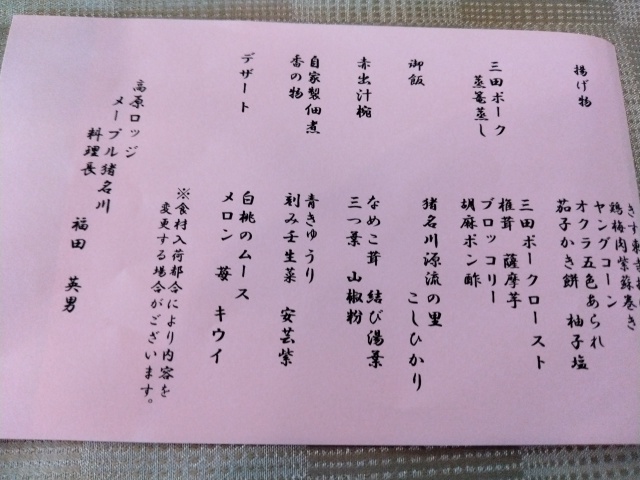 揚げ物
鶏梅肉紫蘇巻き
ヤングコーン
オクラ五色あられ
茄子かき餅 柚子塩
三田ポーク
蒸篭蒸し
三田ポークロースト
椎茸 薩摩芋
ブロッコリー
胡麻ポン酢
御飯
猪名川源流の里
こしひかり
赤出汁椀
なめこ茸 結び湯葉
三つ葉 山椒粉
自家製佃煮
香の物
青きゅうり
刻み壬生菜 安芸紫
デザート
白桃のムース
メロン 苺 キウイ
※食材入荷都合により内容を
変更する場合がございます。
高原ロッジ
メープル猪名川
料理長 福田 英男